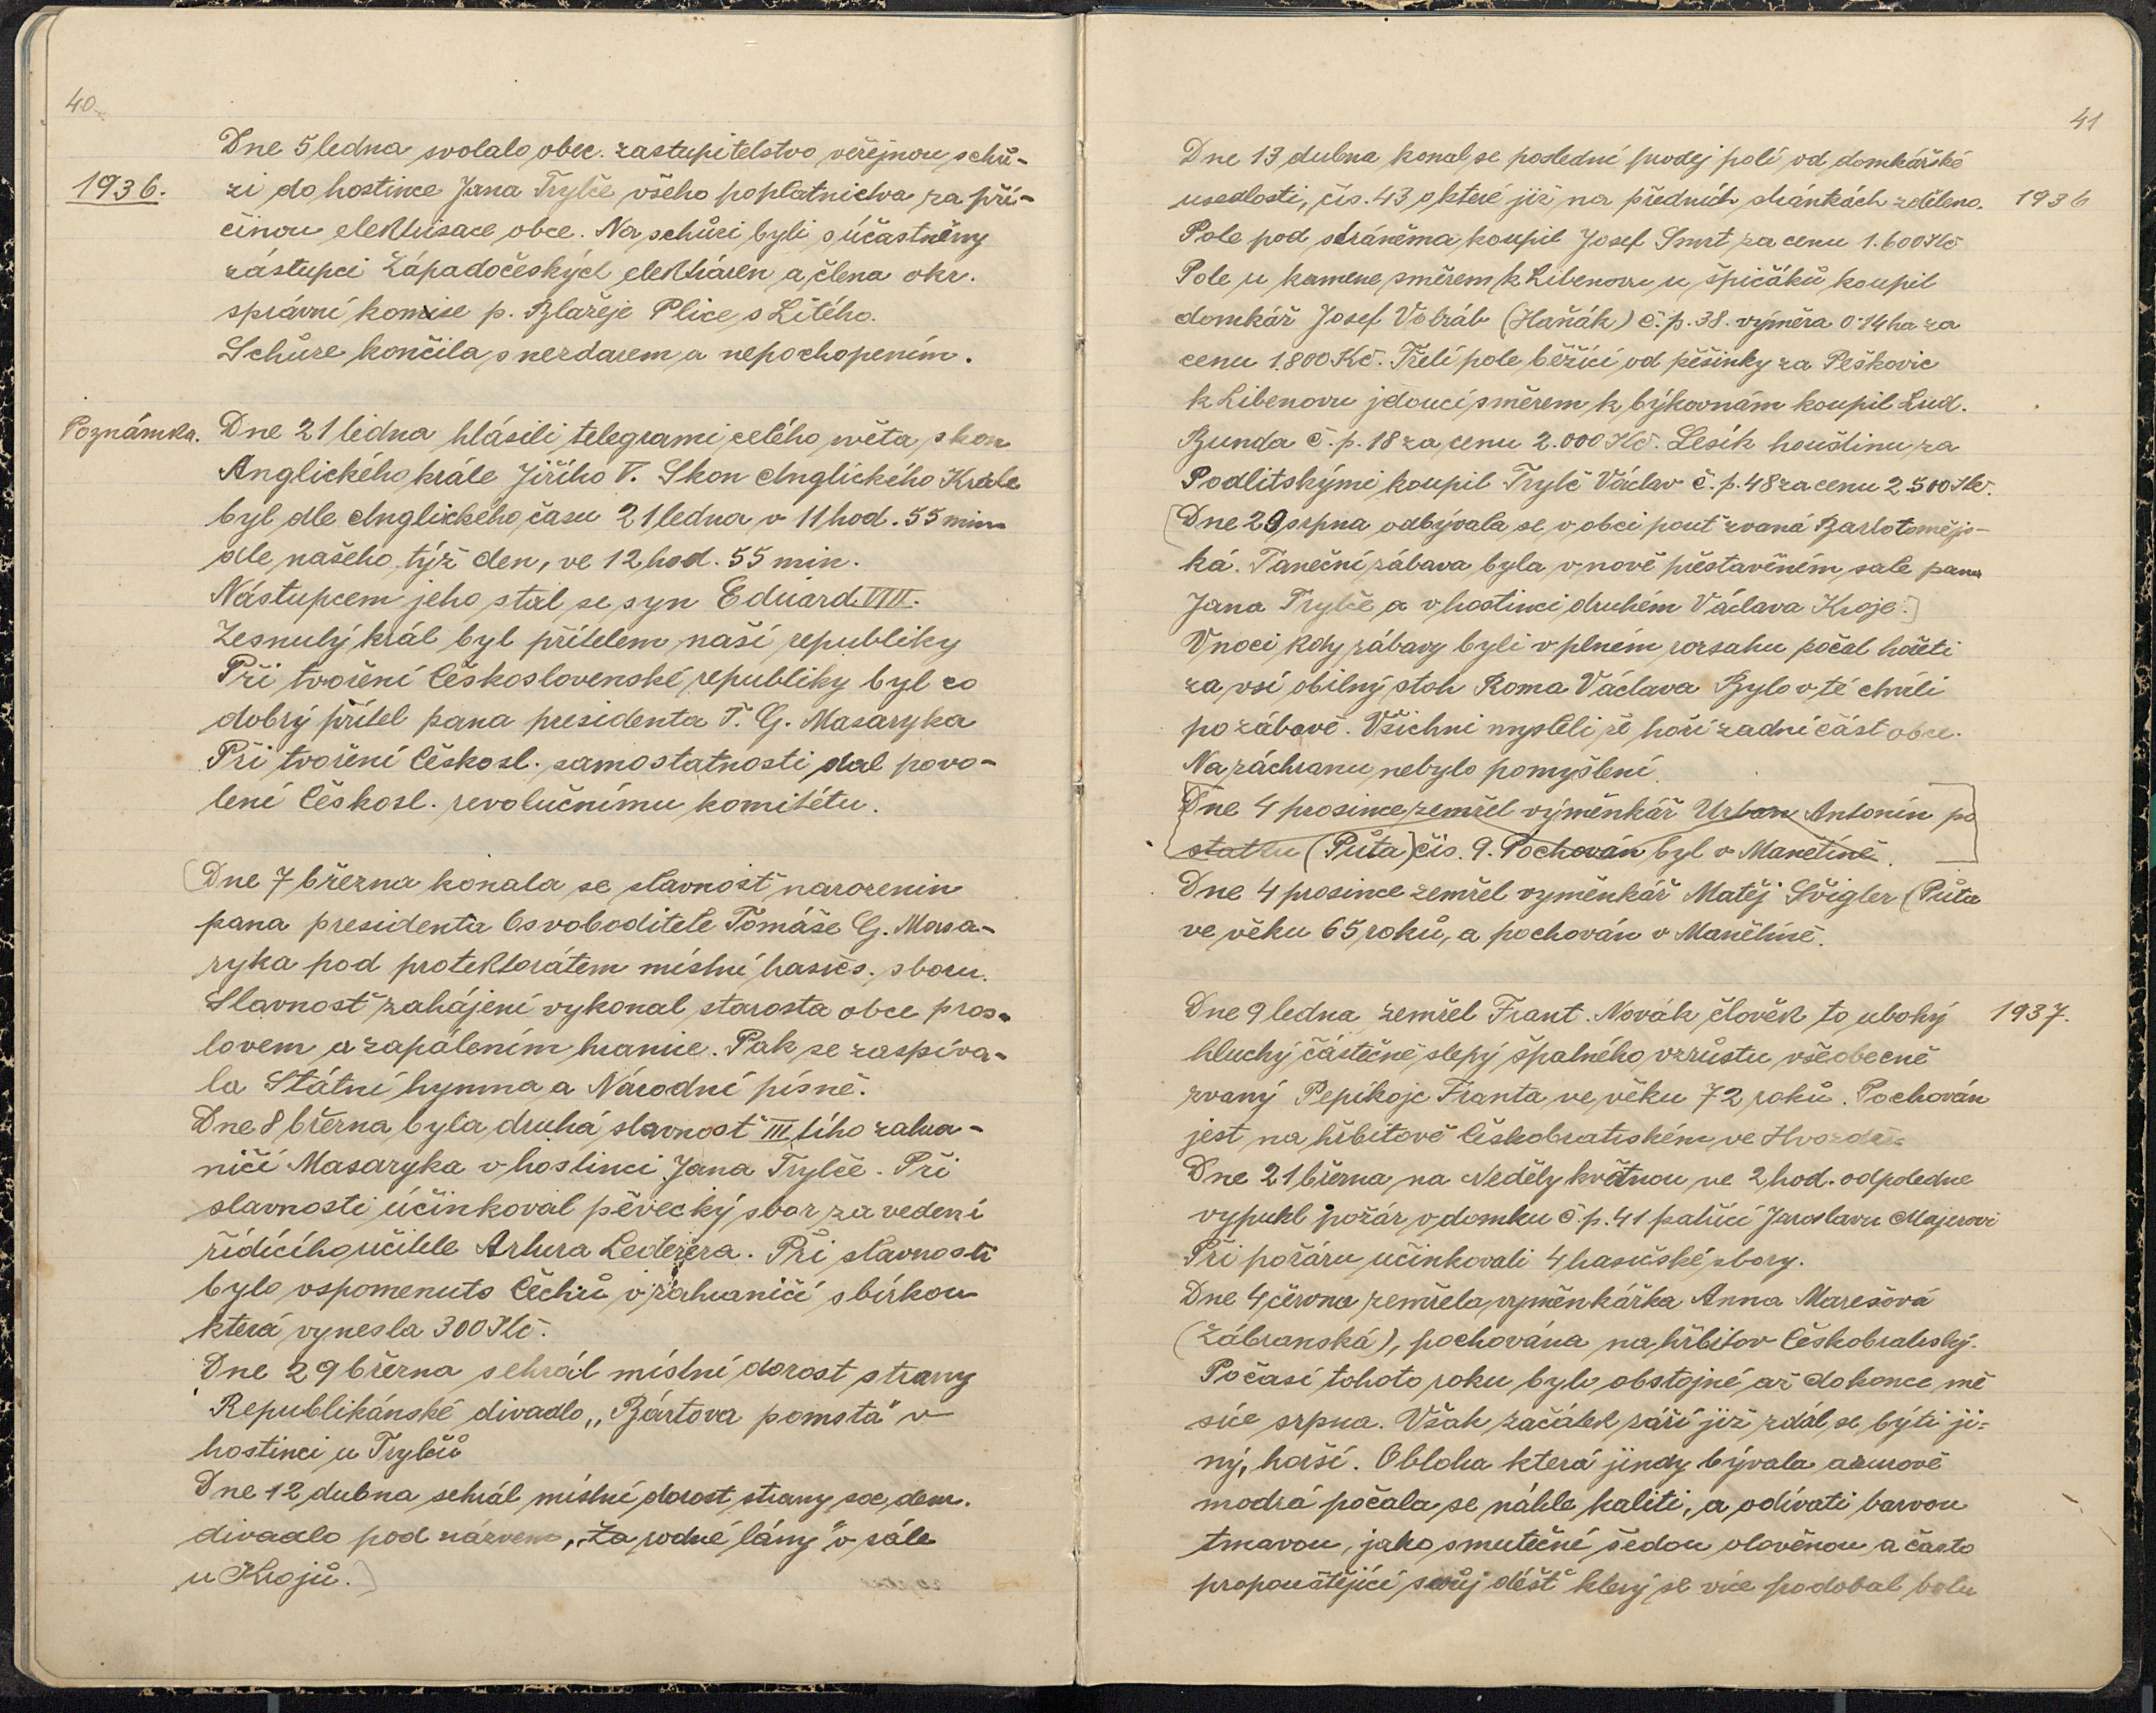 40
Dne 5 ledna svolalo obec. zastupitelstvo veřejnou schů-
1936.
zi do hostince Jana Trylče všeho poplatnictva za pří-
činou elektrisace obce. Na schůzi byli súčastněny
zástupci Západočeských elektráren a člena okr.
správní komise p. Blažeje Plice s Lítého.
Schůze končila s nezdarem a nepochopením.
Poznámka.
Dne 21 ledna hlásili telegrami celého světa, skon
Anglického krále Jiřího V. Skon Anglického Krále
byl dle Anglického času 21 ledna v 11 hod. 55 min
dle našeho týž den, ve 12 hod. 55 min.
Nástupcem jeho stal se syn Eduard VIII.
Zesnulý král byl přítelem naší republiky
Při tvoření Československé republiky byl co
dobrý přítel pana presidenta T. G. Masaryka
Při tvoření Českosl. samostatnosti dal povo-
lení Českosl. revolučnímu komitétu.
(Dne 7 března konala se slavnosť narozenin
pana presidenta Osvoboditele Tomáše G. Masa-
ryka pod protektorátem místní hasičs. sboru.
Slavnosť zahájení vykonal starosta obce pros-
lovem a zapálením hranice. Pak se zaspíva-
la Státní hymna a Národní písně.
Dne 8 března byla druhá slavnosť III tího zahra-
ničí Masaryka v hostinci Jana Trylče. Při
slavnosti účinkoval pěvecký sbor za vedení
řídícího učitele Artura Lederera. Při slavnosti
bylo vspomenuto Čechů v zahraničí sbírkou
která vynesla 300 Kč.
Dne 29 března sehrál místní dorost strany
Republikánské divadlo „Bártova pomsta" v
hostinci u Trylčů
Dne 12 dubna sehrál místní dorost strany soc. dem.
divadlo pod názvem „Za rodné lány" v sále
u Krojů.)
41
Dne 13 dubna konal se poslední prodej polí od domkářské
usedlosti, čís. 43 o které již na předních stránkách zděleno.
1936
Pole pod stráněma koupil Josef Smrt za cenu 1.600 Kč
Pole u kamene směrem k Libenovu u špičáků koupil
domkář Josef Votráb (Haňák) č.p. 38. výměra 0·14 ha za
cenu 1.800 Kč. Třetí pole běžící od pěšinky za Peškovic
k Libenovu jdoucí směrem k býkovnám koupil Lud.
Bunda č.p. 18 za cenu 2.000 Kč. Lesík houštinu za
Podlitskými koupil Trylč Václav č.p. 48 za cenu 2.500 Kč.
[Dne 29 srpna odbývala se v obci pouť zvaná Bartotomějs-
ká. Taneční zábava byla v nově přestavěném sale pana
Jana Trylče a v hostinci druhém Václava Kroje.]
V noci kdy zábavy byli v plném rozsahu počal hořeti
za vsí obilný stoh Roma Václava Bylo v té chvíli
po zábavě. Všichni mysleli že hoří zadní část obce.
Na záchranu nebylo pomyšlení.
[Dne 4 prosince zemřel výměnkář Urban Antonín po
statku (Půta) čís. 9. Pochován byl v Manetíně.]
Dne 4 prosince zemřel vyměnkář Matěj Švigler (Půta
ve věku 65 roků, a pochován v Manětíně.
Dne 9 ledna zemřel Frant. Novák člověk to ubohý
1937.
hluchý částečně slepý špatného vzrůstu všeobecně
zvaný Pepikojc Franta ve věku 72 roků. Pochován
jest na hřbitově Českobratrském ve Hvozdě.
Dne 21 března na Neděly květnou ve 2 hod. odpoledne
vypukl požár v domku č.p. 41 patřící Jaroslavu Majerovi
Při požáru učinkovali 4 hasičské sbory.
Dne 4 června zemřela vyměnkářka Anna Marešová
(Zábranská), pochována na hřbitov Českobratrský.
Počasí tohoto roku bylo obstojné až do konce mě
síce srpna. Však začátek září již zdál se býti ji-
ný, horší. Obloha která jindy bývala azurově
modrá počala se náhle kaliti, a odívati barvou
tmavou, jako smuteční šedou olověnou a často
propouštějící svůj déšť který se více podobal bolu